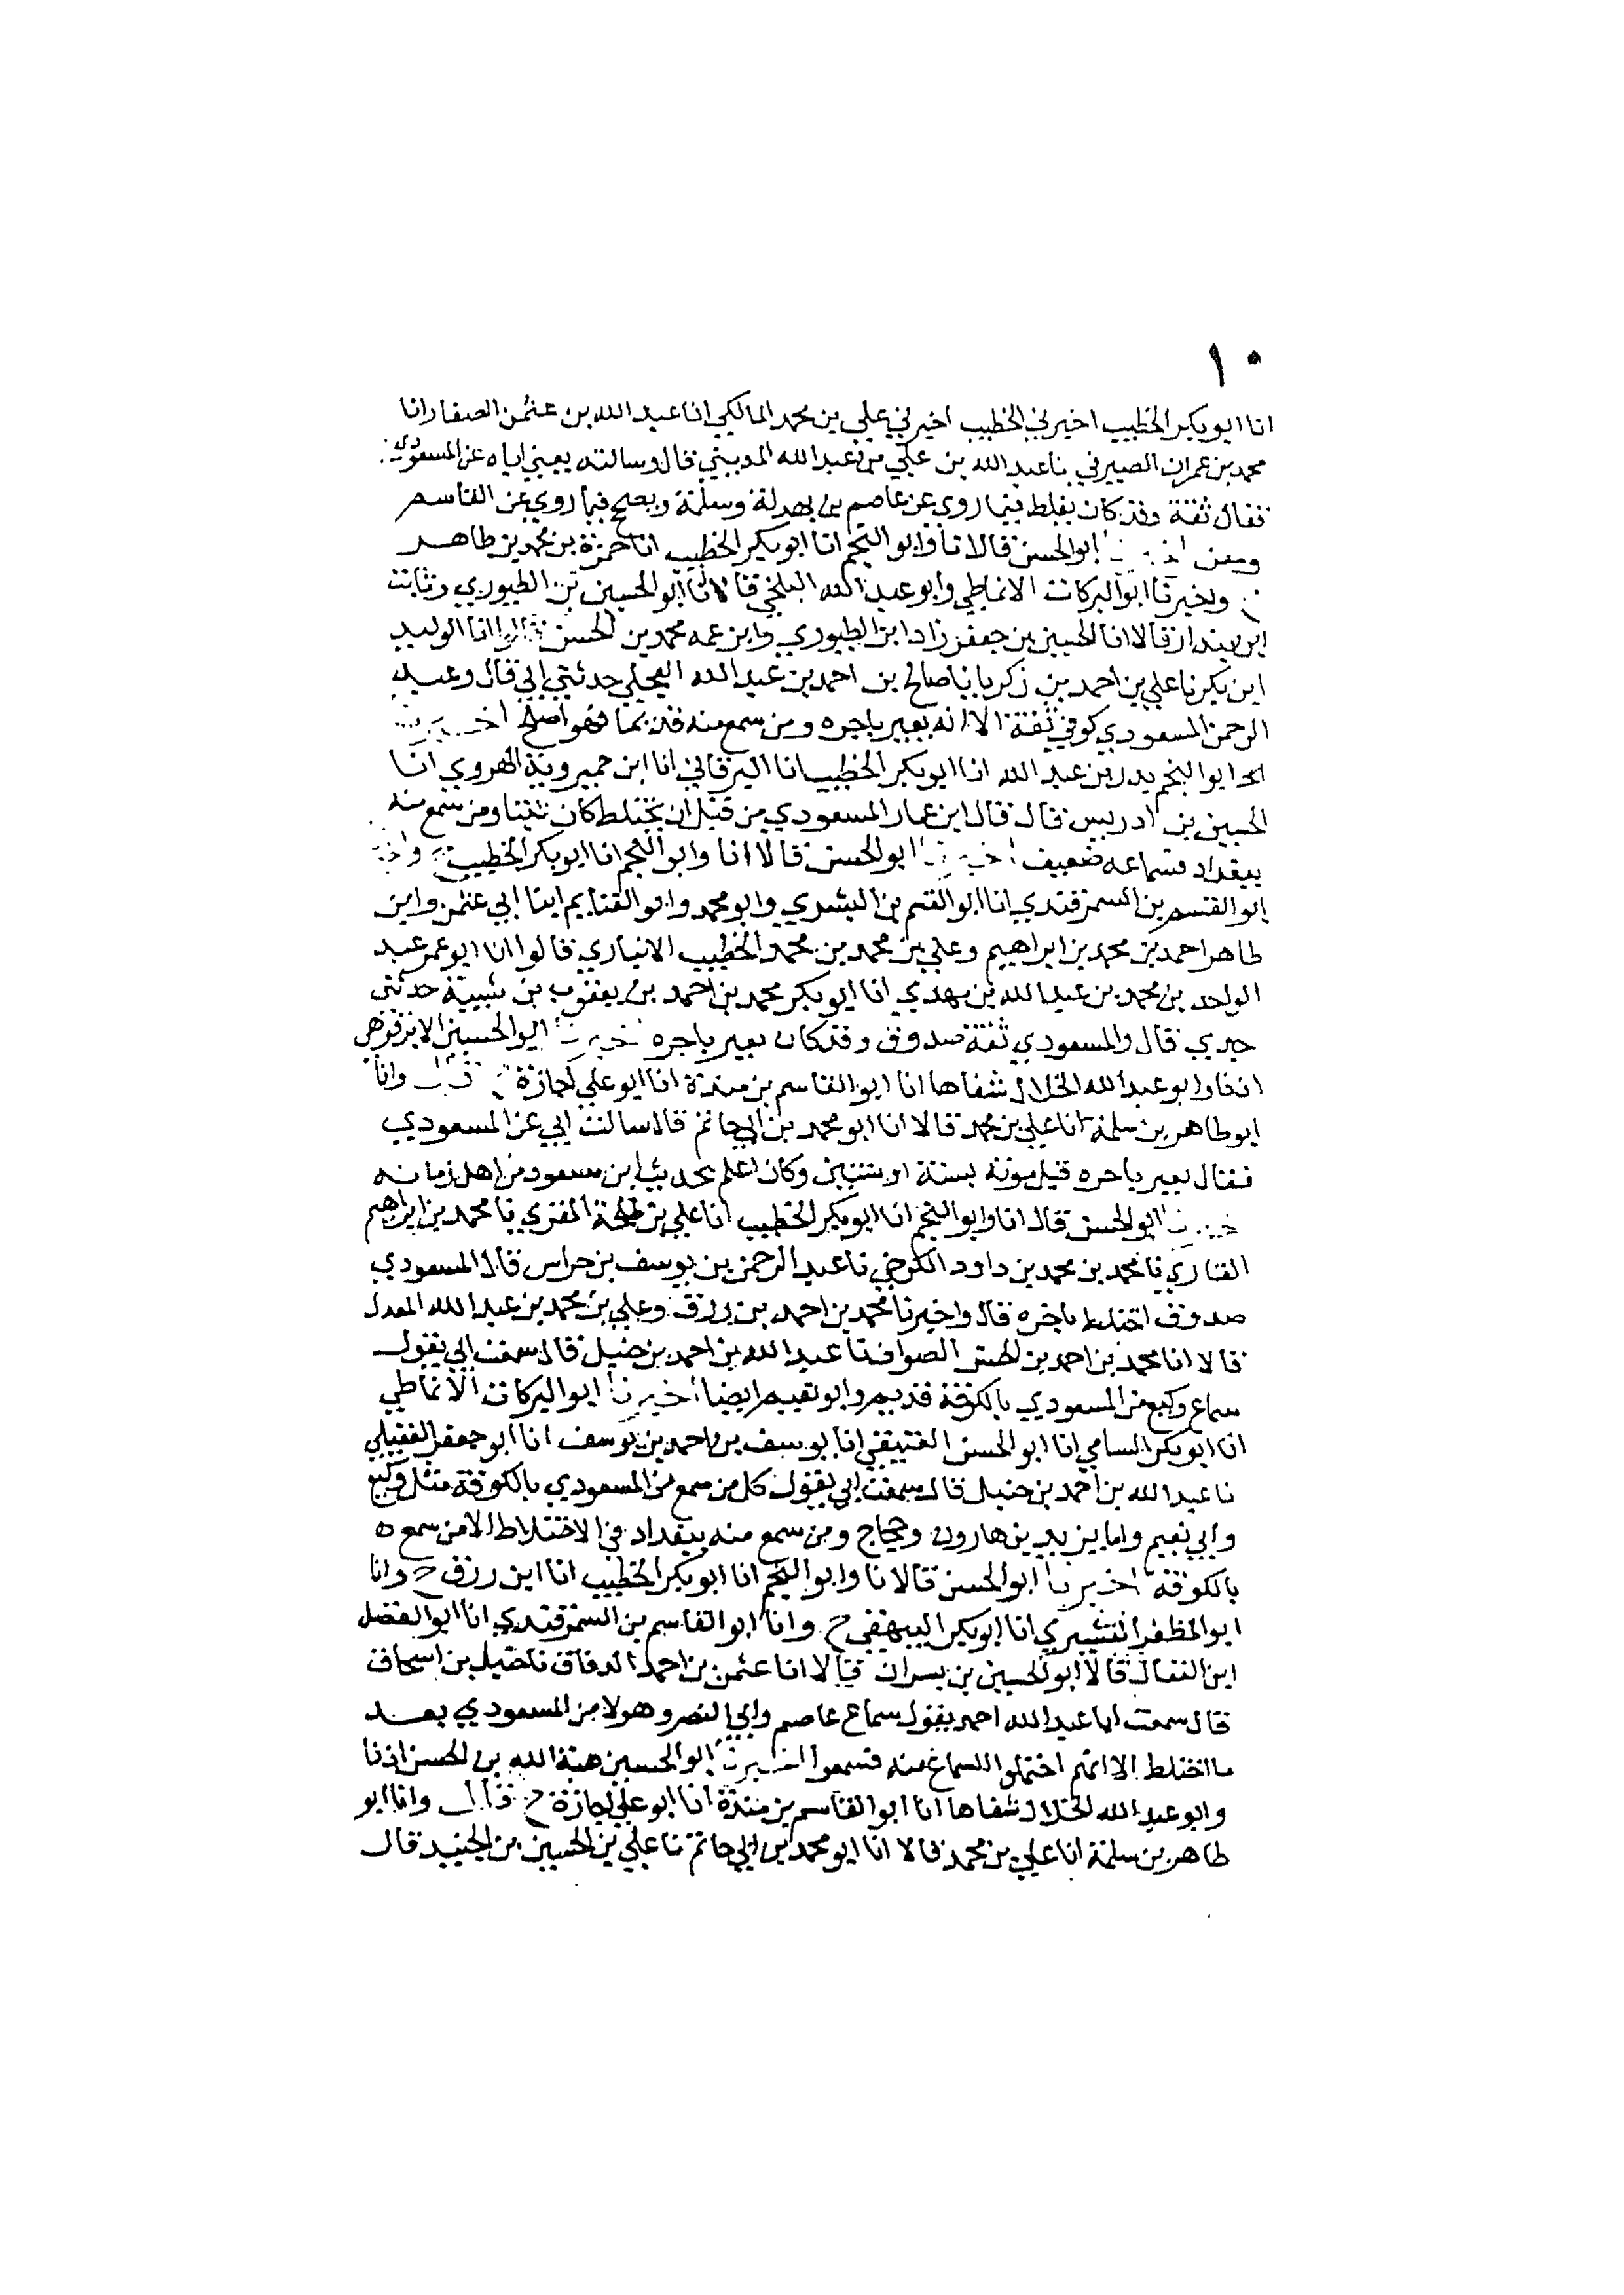 ١٠
انا ابو بكر الخطيب اخبرني الخطيب اخبرني علي بن محمد المالكي انا عبد الله بن عثمن الصفار انا
محمد بن عمران الصيرفي نا عبد الله بن علي بن عبد الله المديني قال وسالته يعني اباه عن المسعودي
فقال ثقة وقد كان يغلط فيما روى عن عاصم بن بهدلة وسلمة ويصح فيما روى عن القاسم
ومعن اخبرنا ابو الحسن قالا نا وابو النجم انا ابو بكر الخطيب انا حمزة بن محمد بن طاهر
واخبرنا ابو البركات الانماطي وابو عبد الله البلخي قالا انا ابو الحسين بن الطيوري وثابت
ابن بندار قالا انا الحسين بن جعفر زاد ابن الطيوري وابن عمه محمد بن الحسن قالا انا الوليد
ابن بكر نا علي بن احمد بن زكريا نا صالح بن احمد بن عبد الله العجلي حدثني ابي قال وعبد
الرحمن المسعودي كوفي ثقة الا انه تغير باخره ومن سمع منه قديما فهو اصلح اخبرنا
ابو النجم بدر بن عبد الله انا ابو بكر الخطيب انا البرقاني انا ابن خميرويه الهروي انا
الحسين بن ادريس قال قال ابن عمار المسعودي من قبل ان يختلط كان ثبتا ومن سمع منه
ببغداد فسماعه ضعيف اخبرنا ابو الحسن قالا انا وابو النجم انا ابو بكر الخطيب ح واخبرنا
ابو القسم بن السمرقندي انا ابو القسم بن البسري وابو محمد وابو الغنايم ابنا ابي عثمن وابن
طاهر احمد بن محمد بن ابراهيم وعلي بن محمد بن محمد الخطيب الانباري قالوا انا ابو عمر عبد
الواحد بن محمد بن عبد الله بن مهدي انا ابو بكر محمد بن احمد بن يعقوب بن شيبة حدثني
جدي قال والمسعودي ثقة صدوق وقد كان تغير باخره اخبرنا ابو الحسين الابرقوهي
اذنا وابو عبد الله الخلال شفاها انا ابو القاسم بن مندة انا ابو علي اجازة ح قال وانا
ابو طاهر بن سلمة انا علي بن محمد قالا انا ابو محمد بن ابي حاتم قال سالت ابي عن المسعودي
فقال تغير باخره قبل موته بسنة او سنتين وكان اعلم بحديث ابن مسعود من اهل زمانه
اخبرنا ابو الحسن قال انا وابو النجم انا ابو بكر الخطيب انا علي بن طلحة المقري نا محمد بن ابراهيم
القاري نا محمد بن محمد بن داود الكرجي نا عبد الرحمن بن يوسف بن خراس قال المسعودي
صدوق اختلط باخره قال واخبرنا محمد بن احمد بن رزق وعلي بن محمد بن عبد الله المعدل
قالا انا محمد بن احمد بن الحسن الصواف نا عبد الله بن احمد بن حنبل قال سمعت ابي يقول
سماع وكيع من المسعودي بالكوفة قديم وابو نعيم ايضا اخبرنا ابو البركات الانماطي
انا ابو بكر السامي انا ابو الحسن العتيقي انا يوسف بن احمد بن يوسف انا ابو جعفر العقيلي
نا عبد الله بن احمد بن حنبل قال سمعت ابي يقول كل من سمع من المسعودي بالكوفة مثل وكيع
وابي نعيم واما يزيد بن هارون وحجاج ومن سمع منه ببغداد في الاختلاط الا من سمع ه
بالكوفة اخبرنا ابو الحسن قالا نا وابو النجم انا ابو بكر الخطيب انا ابن رزق ح وانا
ابو المظفر القشيري انا ابو بكر البيهقي ح وانا ابو القاسم بن السمرقندي انا ابو الفضل
ابن البقال قالا ابو الحسين بن بسران قالا انا عثمن بن احمد الدقاق نا حنبل بن اسحاق
قال سمعت ابا عبد الله احمد يقول سماع عاصم وابي النضر وهولا من المسعودي بعد
ما اختلط الا انهم احتملوا السماع منه فسمعوا اخبرنا ابو الحسين هبة الله بن الحسن اذنا
وابو عبد الله الخلال شفاها انا ابو القاسم بن مندة انا ابو علي اجازة ح قال وانا ابو
طاهر بن سلمة انا علي بن محمد قالا انا ابو محمد بن ابي حاتم نا علي بن الحسين بن الجنيد قال